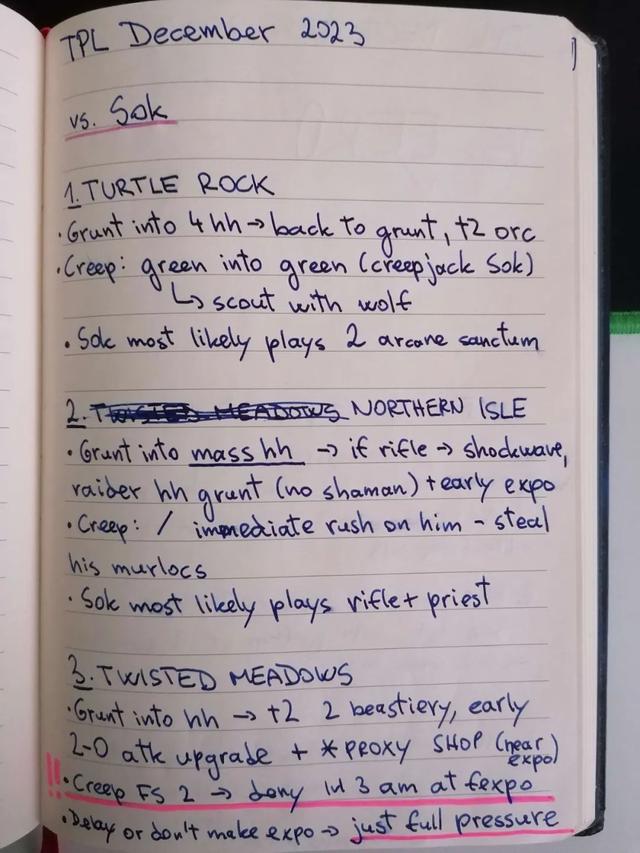 TPL December 2023
vs. Sok
1. TURTLE ROCK
· Grunt into 4 hh → back to grunt, t2 orc
· Creep: green into green (creepjack Sok)
↳ scout with wolf
· Sok most likely plays 2 arcane sanctum
2. TWISTED MEADOWS NORTHERN ISLE
· Grunt into mass hh → if rifle → shockwave,
raider hh grunt (no shaman) + early expo
· Creep: / immediate rush on him - steal
his murlocs
· Sok most likely plays rifle + priest
3. TWISTED MEADOWS
· Grunt into hh → t2 2 beastiery, early
2-0 atk upgrade + * PROXY SHOP (near expo)
!! · Creep FS 2 → deny lvl 3 am at fexpo
· Delay or don't make expo → just full pressure